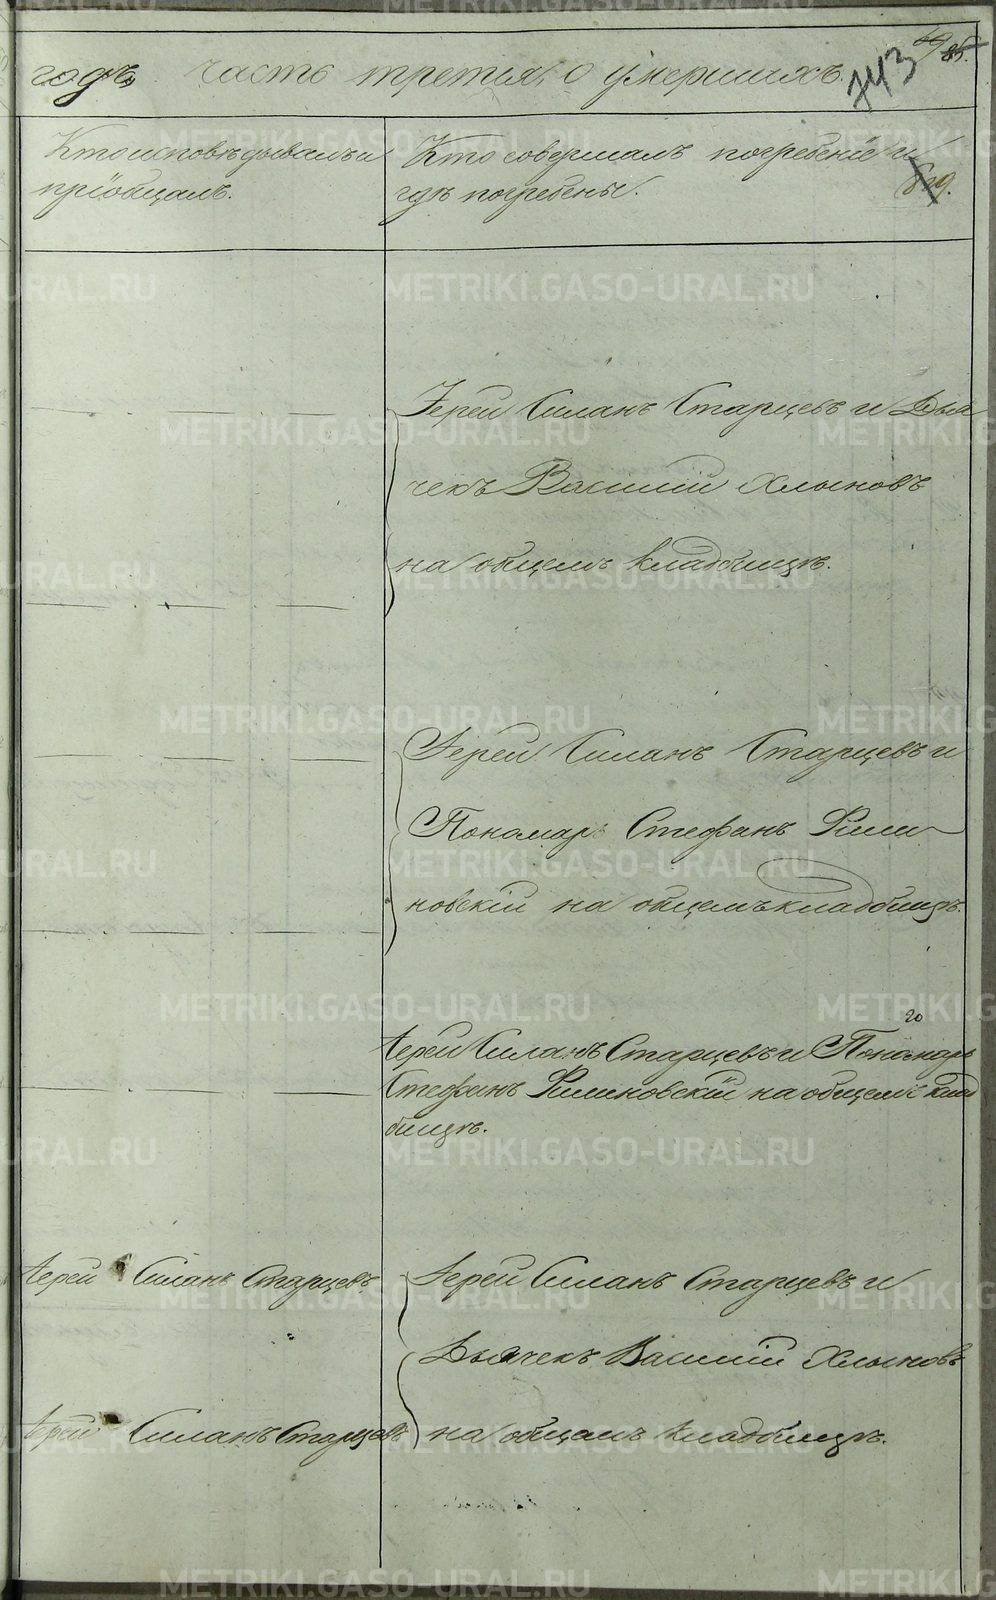 годъ, часть третья, о умершихъ.
743
85.
Кто исповѣдывалъ и
пріобщалъ.
Кто совершалъ погребеніе и
гдѣ погребены.
Іерей Силанъ Старцевъ и Дья
чекъ Василій Хлыновъ
на общемъ кладбищѣ.
Іерей Силанъ Старцевъ и
Пономарь Стефанъ
новскій на общемъ кладбищѣ.
20
Іерей Силанъ Старцевъ и Пономарь
Стефанъ на общемъ клад
бищѣ.
Іерей Силанъ Старцевъ
Іерей Силанъ Старцевъ и
Дьячекъ Василій Хлыновъ
Іерей Силанъ Старцевъ
на общемъ кладбищѣ.
METRIKI.GASO-URAL.RU